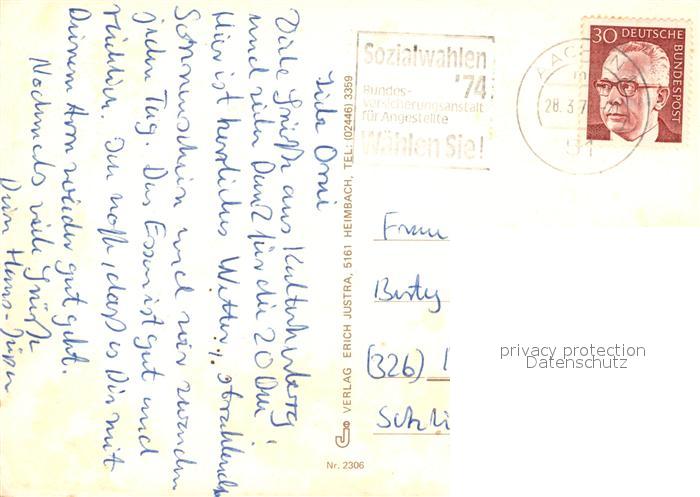 Liebe Omi
Viele Grüße aus Kalterherberg
und vielen Dank für die 20 DM!
Hier ist herrliches Wetter, strahlender
Sonnenschein und wir wandern
jeden Tag. Das Essen ist gut und
reichlich. Ich hoffe, daß es Dir mit
Deinem Arm wieder gut geht.
Nochmals viele Grüße
Dein Hans-Jürgen
VERLAG ERICH JUSTRA, 5161 HEIMBACH, TEL: (02446) 3359
Nr. 2306
Sozialwahlen
'74
Bundes-
versicherungsanstalt
für Angestellte
Wählen Sie!
AACHEN
28.3.7
51
30 DEUTSCHE
BUNDESPOST
Frau
(326)
privacy protection
Datenschutz